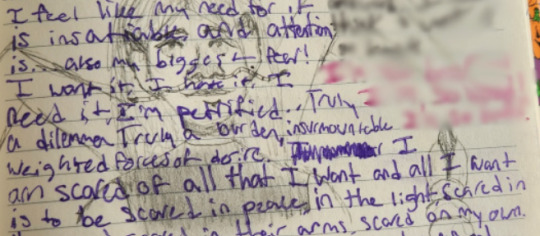 I feel like my need for it
is insatiable and attention
is.. also my biggest fear!
I want it, I hate it, I
need it, I'm petrified.. Truly
a dilemma Truly a burden, insurmountable
weighted forces of desire. I
am scared of all that I want and all I want
is to be scared in peace, in the light, scared in
scared in their arms, scared on my own.